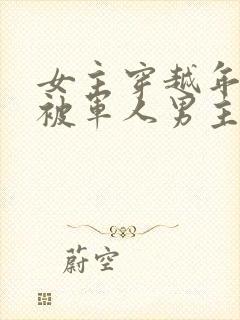 女主穿越年
被军人男主
蔚空